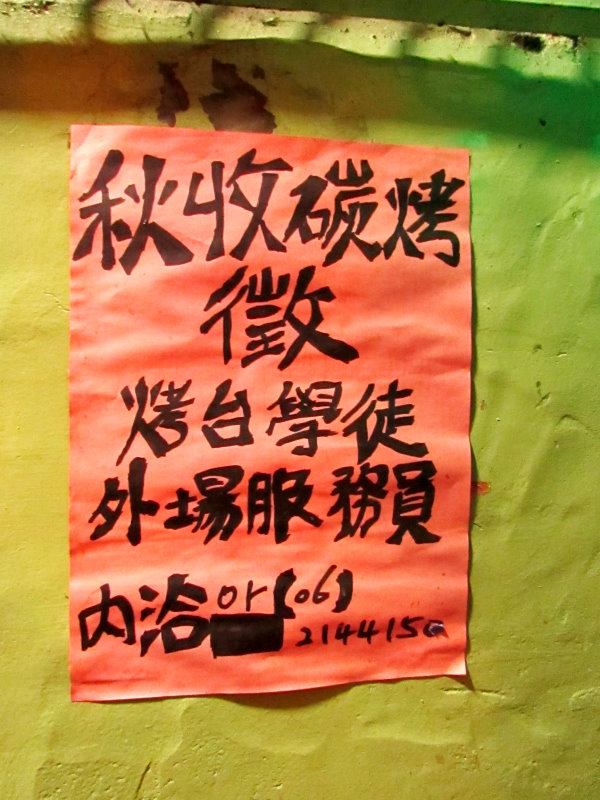 秋收碳烤
徵
烤台學徒
外場服務員
內洽 or【06】
214415